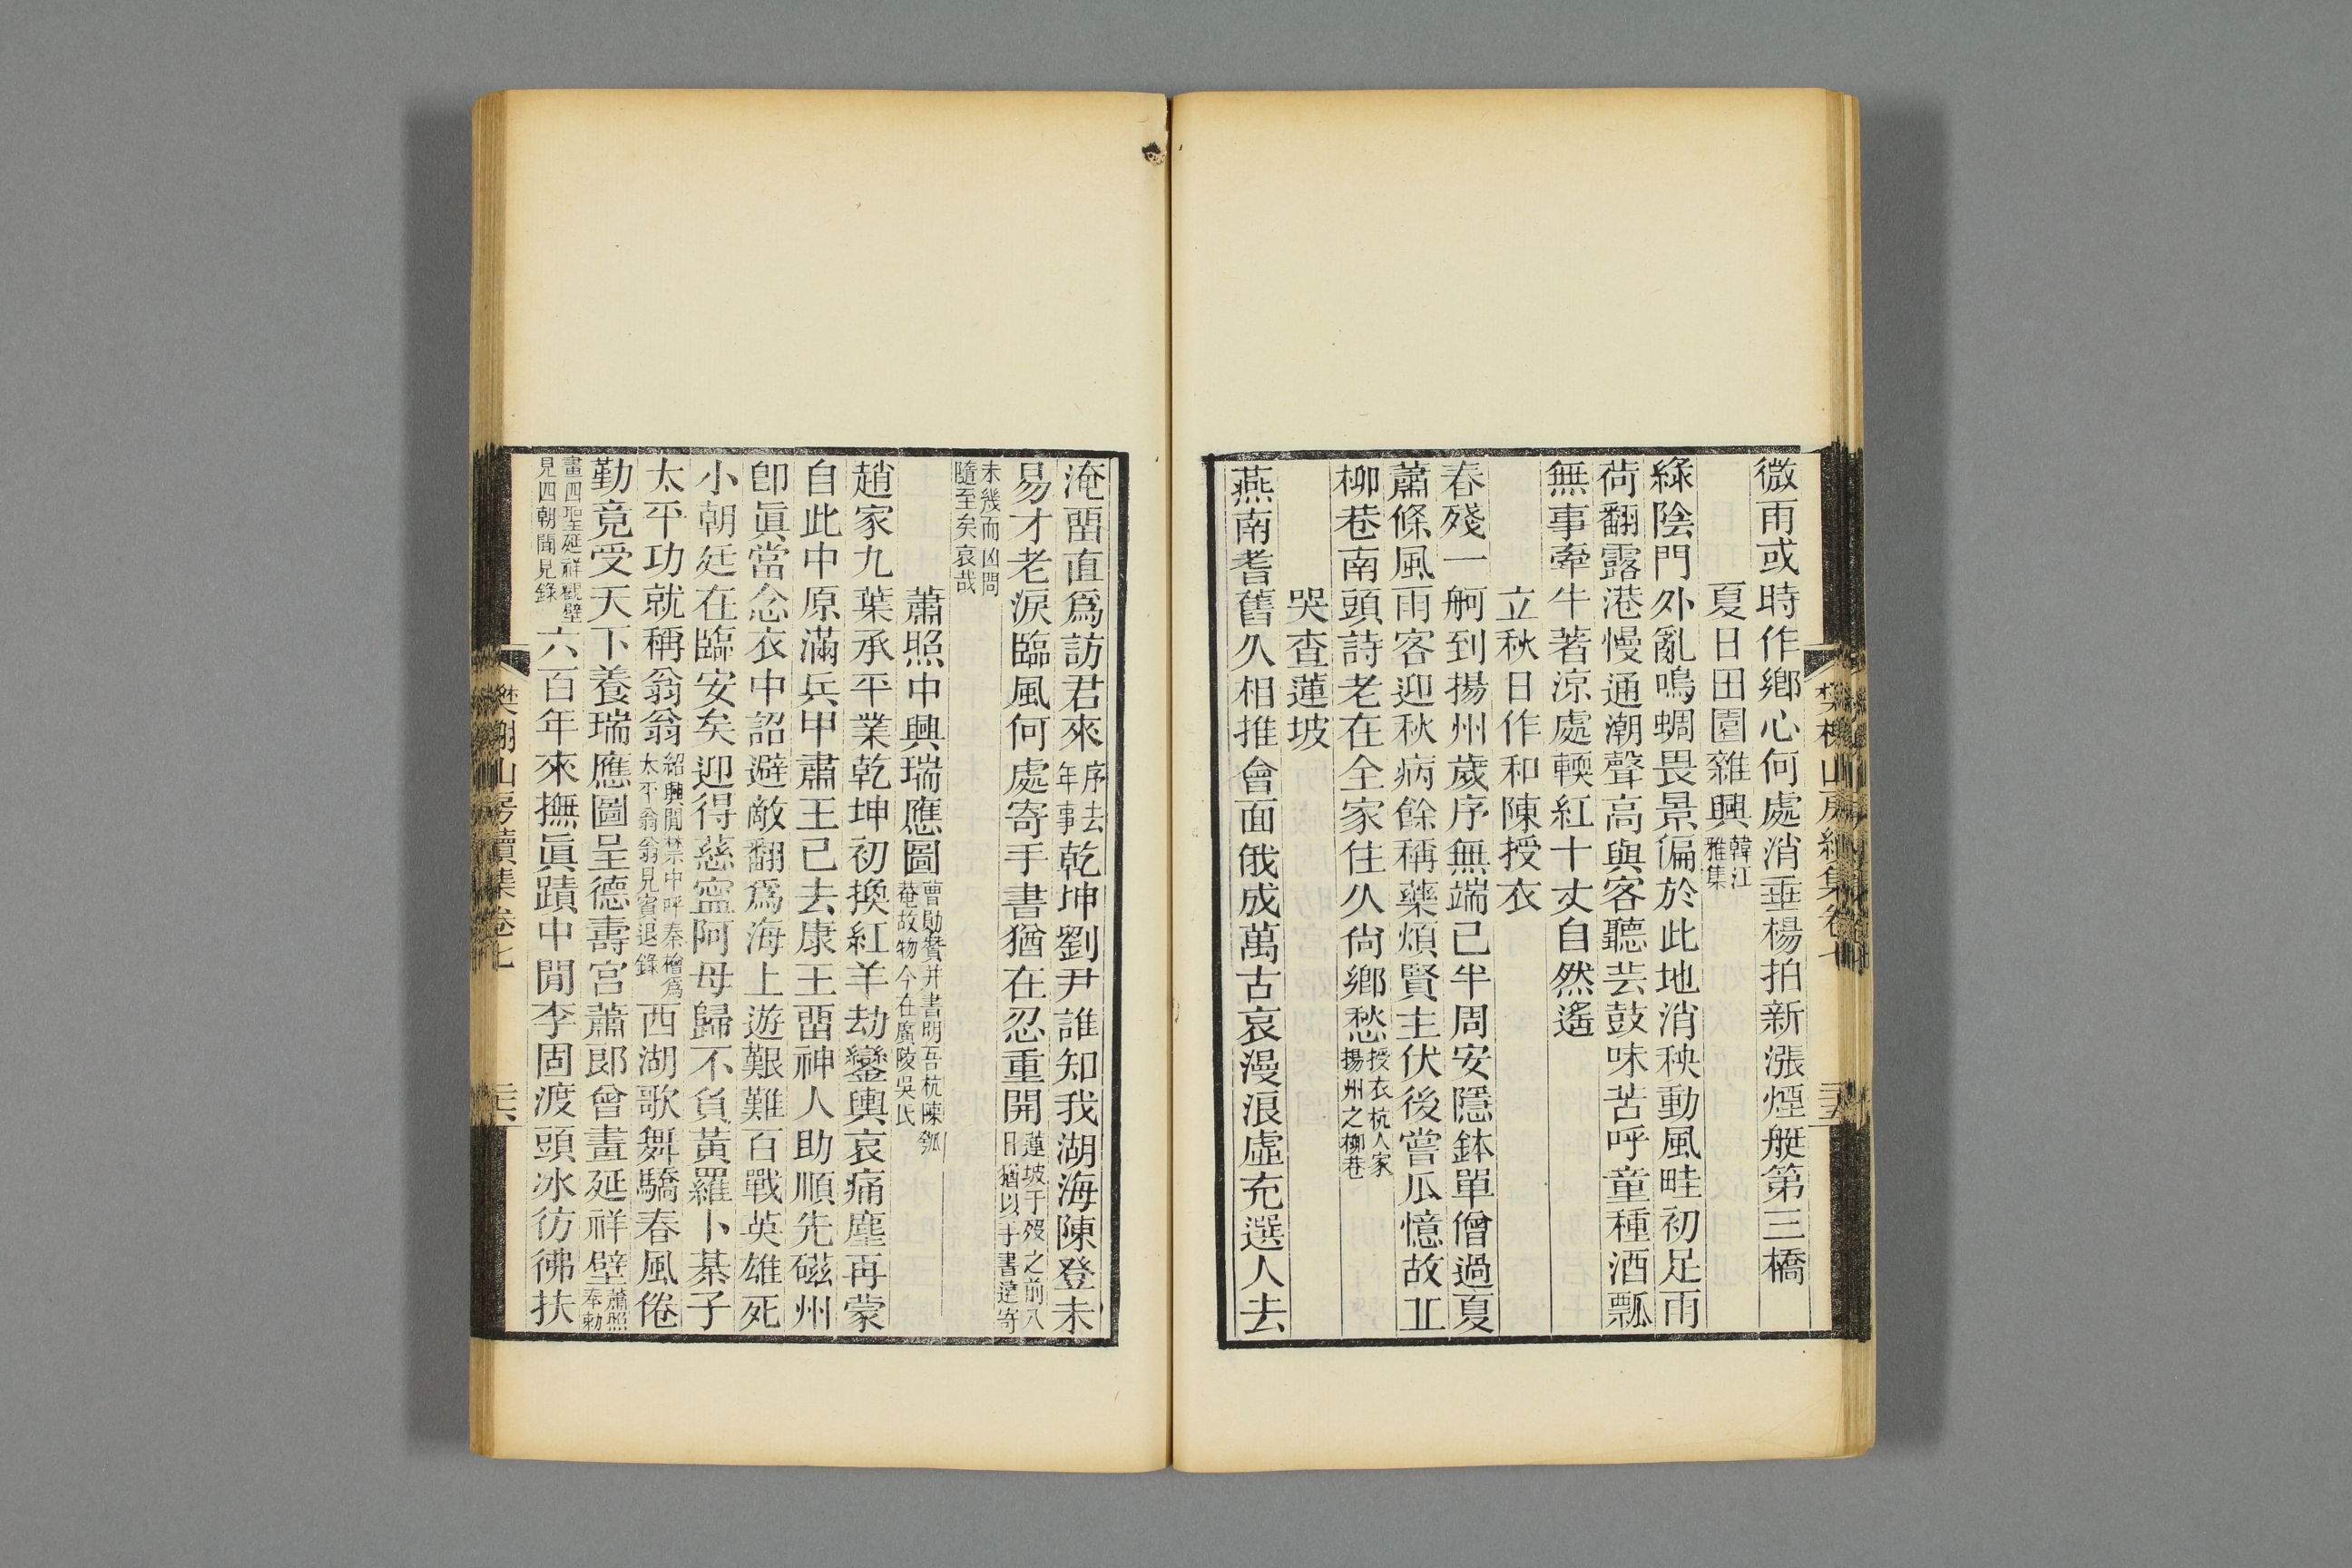 微雨或時作鄉心何處消垂楊拍新漲煙艇第三橋
夏日田園雜興韓江雅集
綠陰門外亂鳴蜩畏景偏於此地消秧動風畦初足雨
荷翻露港慢通潮聲高與客聽芸鼓味苦呼童種酒瓢
無事牽牛著涼處輭紅十丈自然遙
立秋日作和陳授衣
春殘一舸到揚州歲序無端已半周安隱鉢單僧過夏
蕭條風雨客迎秋病餘稱藥煩賢主伏後嘗瓜憶故丘
柳巷南頭詩老在全家住久尙鄉愁授衣杭人家揚州之柳巷
哭查蓮坡
燕南耆舊久相推會面俄成萬古哀漫浪虛充選人去
樊榭山房續集卷七
淹畱直爲訪君來序去年事乾坤劉尹誰知我湖海陳登未
易才老淚臨風何處寄手書猶在忍重開蓮坡于歿之前八日猶以手書遠寄
未幾而凶問隨至矣哀哉
蕭照中興瑞應圖曹勛贊幷書明吾杭陳瓠菴故物今在廣陵吳氏
趙家九葉承平業乾坤初換紅羊劫鑾輿哀痛塵再蒙
自此中原滿兵甲肅王已去康王畱神人助順先磁州
卽眞當念衣中詔避敵翻爲海上遊艱難百戰英雄死
小朝廷在臨安矣迎得慈寧阿母歸不負黃羅卜棊子
太平功就稱翁翁紹興閒禁中呼秦檜爲太平翁翁見賓退錄西湖歌舞驕春風倦
勤竟受天下養瑞應圖呈德壽宮蕭郎曾畫延祥壁蕭照奉勅
畫四聖延祥觀壁見四朝聞見錄六百年來撫眞蹟中閒李固渡頭冰彷彿扶
樊榭山房續集卷七